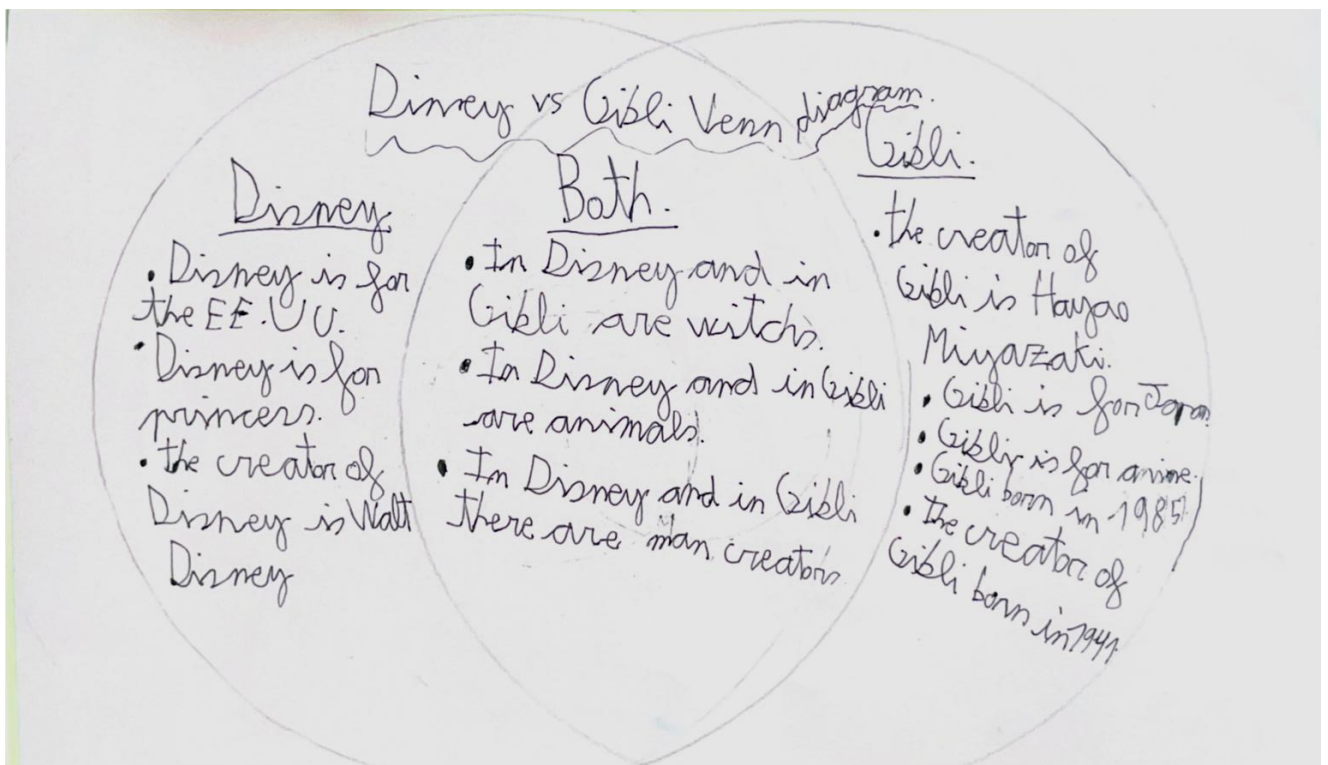 Disney vs Gibli Venn diagram.
Disney
• Disney is for
the EE.UU.
• Disney is for
princess.
• the creator of
Disney is Walt
Disney
Both.
• In Disney and in
Gibli are witchs.
• In Disney and in Gibli
are animals.
• In Disney and in Gibli
there are man creators
Gibli.
• the creator of
Gibli is Hayao
Miyazaki.
• Gibli is for Japan
• Gibli is for anime.
• Gibli born in 1985
• The creator of
Gibli born in 1941